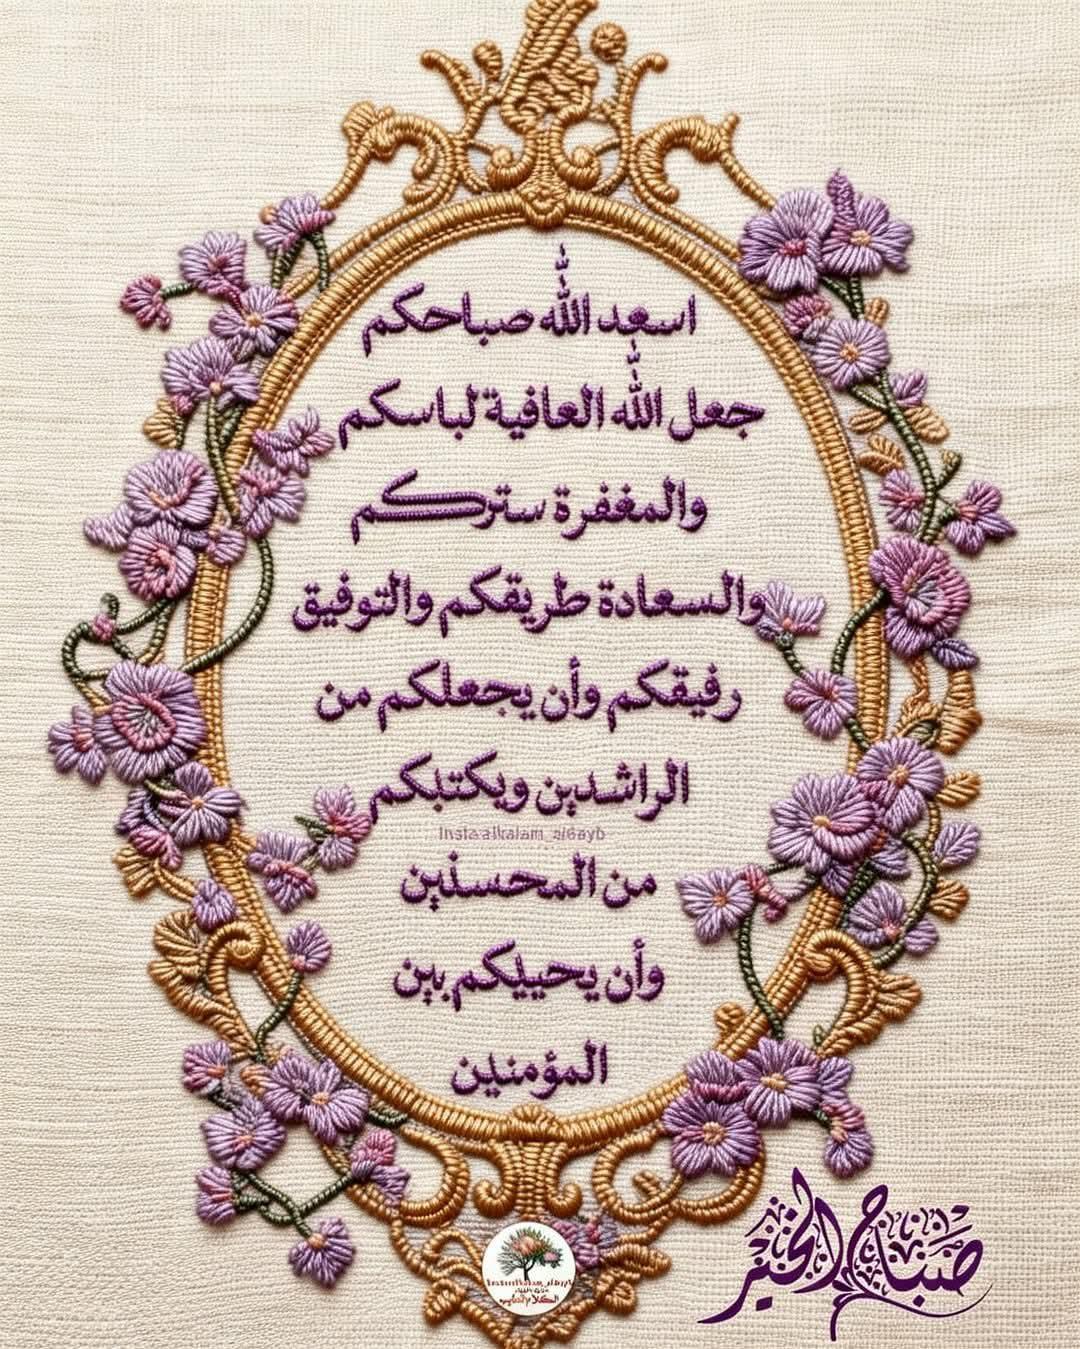 اسعد الله صباحكم
جعل الله العافية لباسكم
والمغفرة ستركم
والسعادة طريقكم والتوفيق
رفيقكم وأن يجعلكم من
الراشدين ويكتبكم
Insta:alkalam_altayb
من المحسنين
وأن يحييكم بين
المؤمنين
صباح الخير
الكلام الطيب